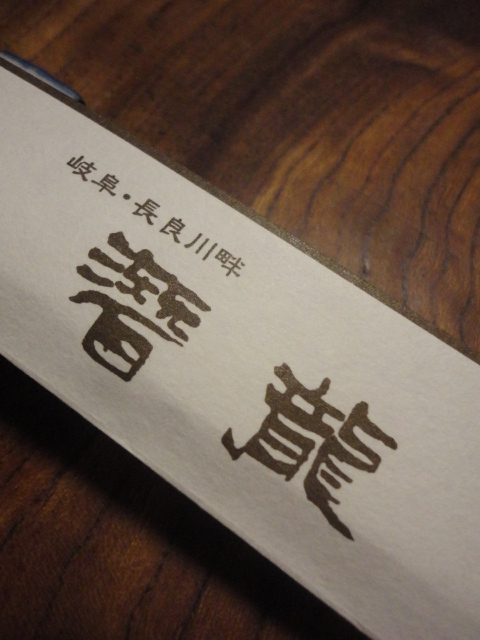 岐阜・長良川畔
潜龍